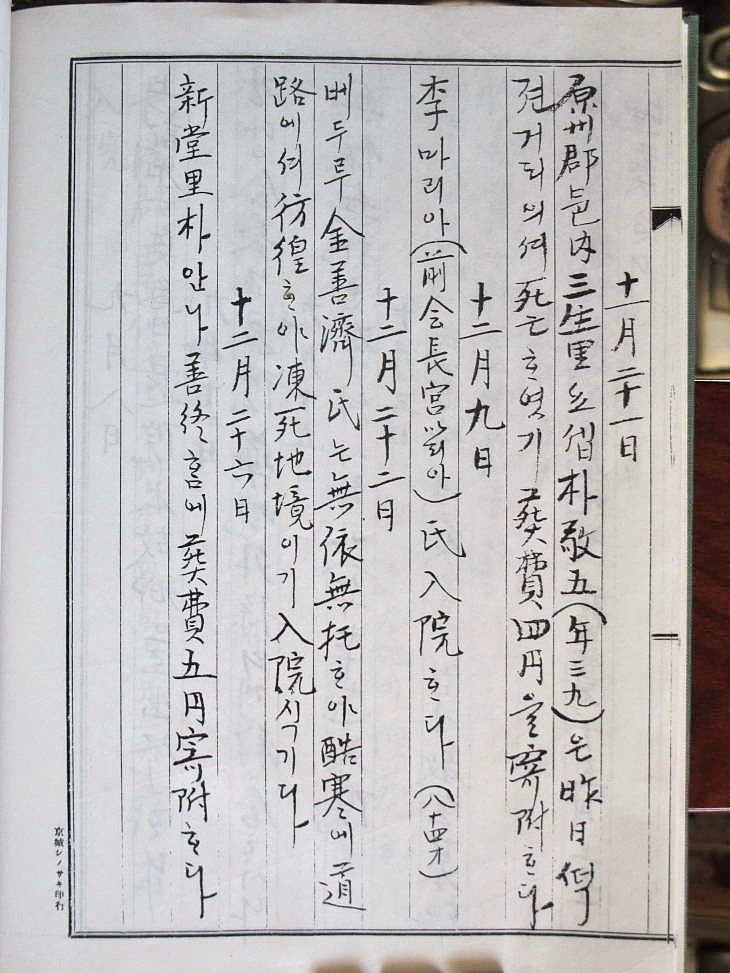 十一月二十一日
原州郡邑內 三生里 朴敬五(年三九)은 昨日
거리의셔 死亡ᄒᆞ엿기 葬費四円을 寄附ᄒᆞ다
十二月九日
李마리아(前会長宮마리아)氏入院ᄒᆞ다(八十四才)
十二月二十二日
베두루 金善濟氏는 無依無托ᄒᆞ야 酷寒에 道
路에셔 彷徨ᄒᆞ야 凍死地境이기 入院식기다
十二月二十六日
新堂里 朴안나 善終홈에 葬費五円 寄附ᄒᆞ다
京城シノサキ印行